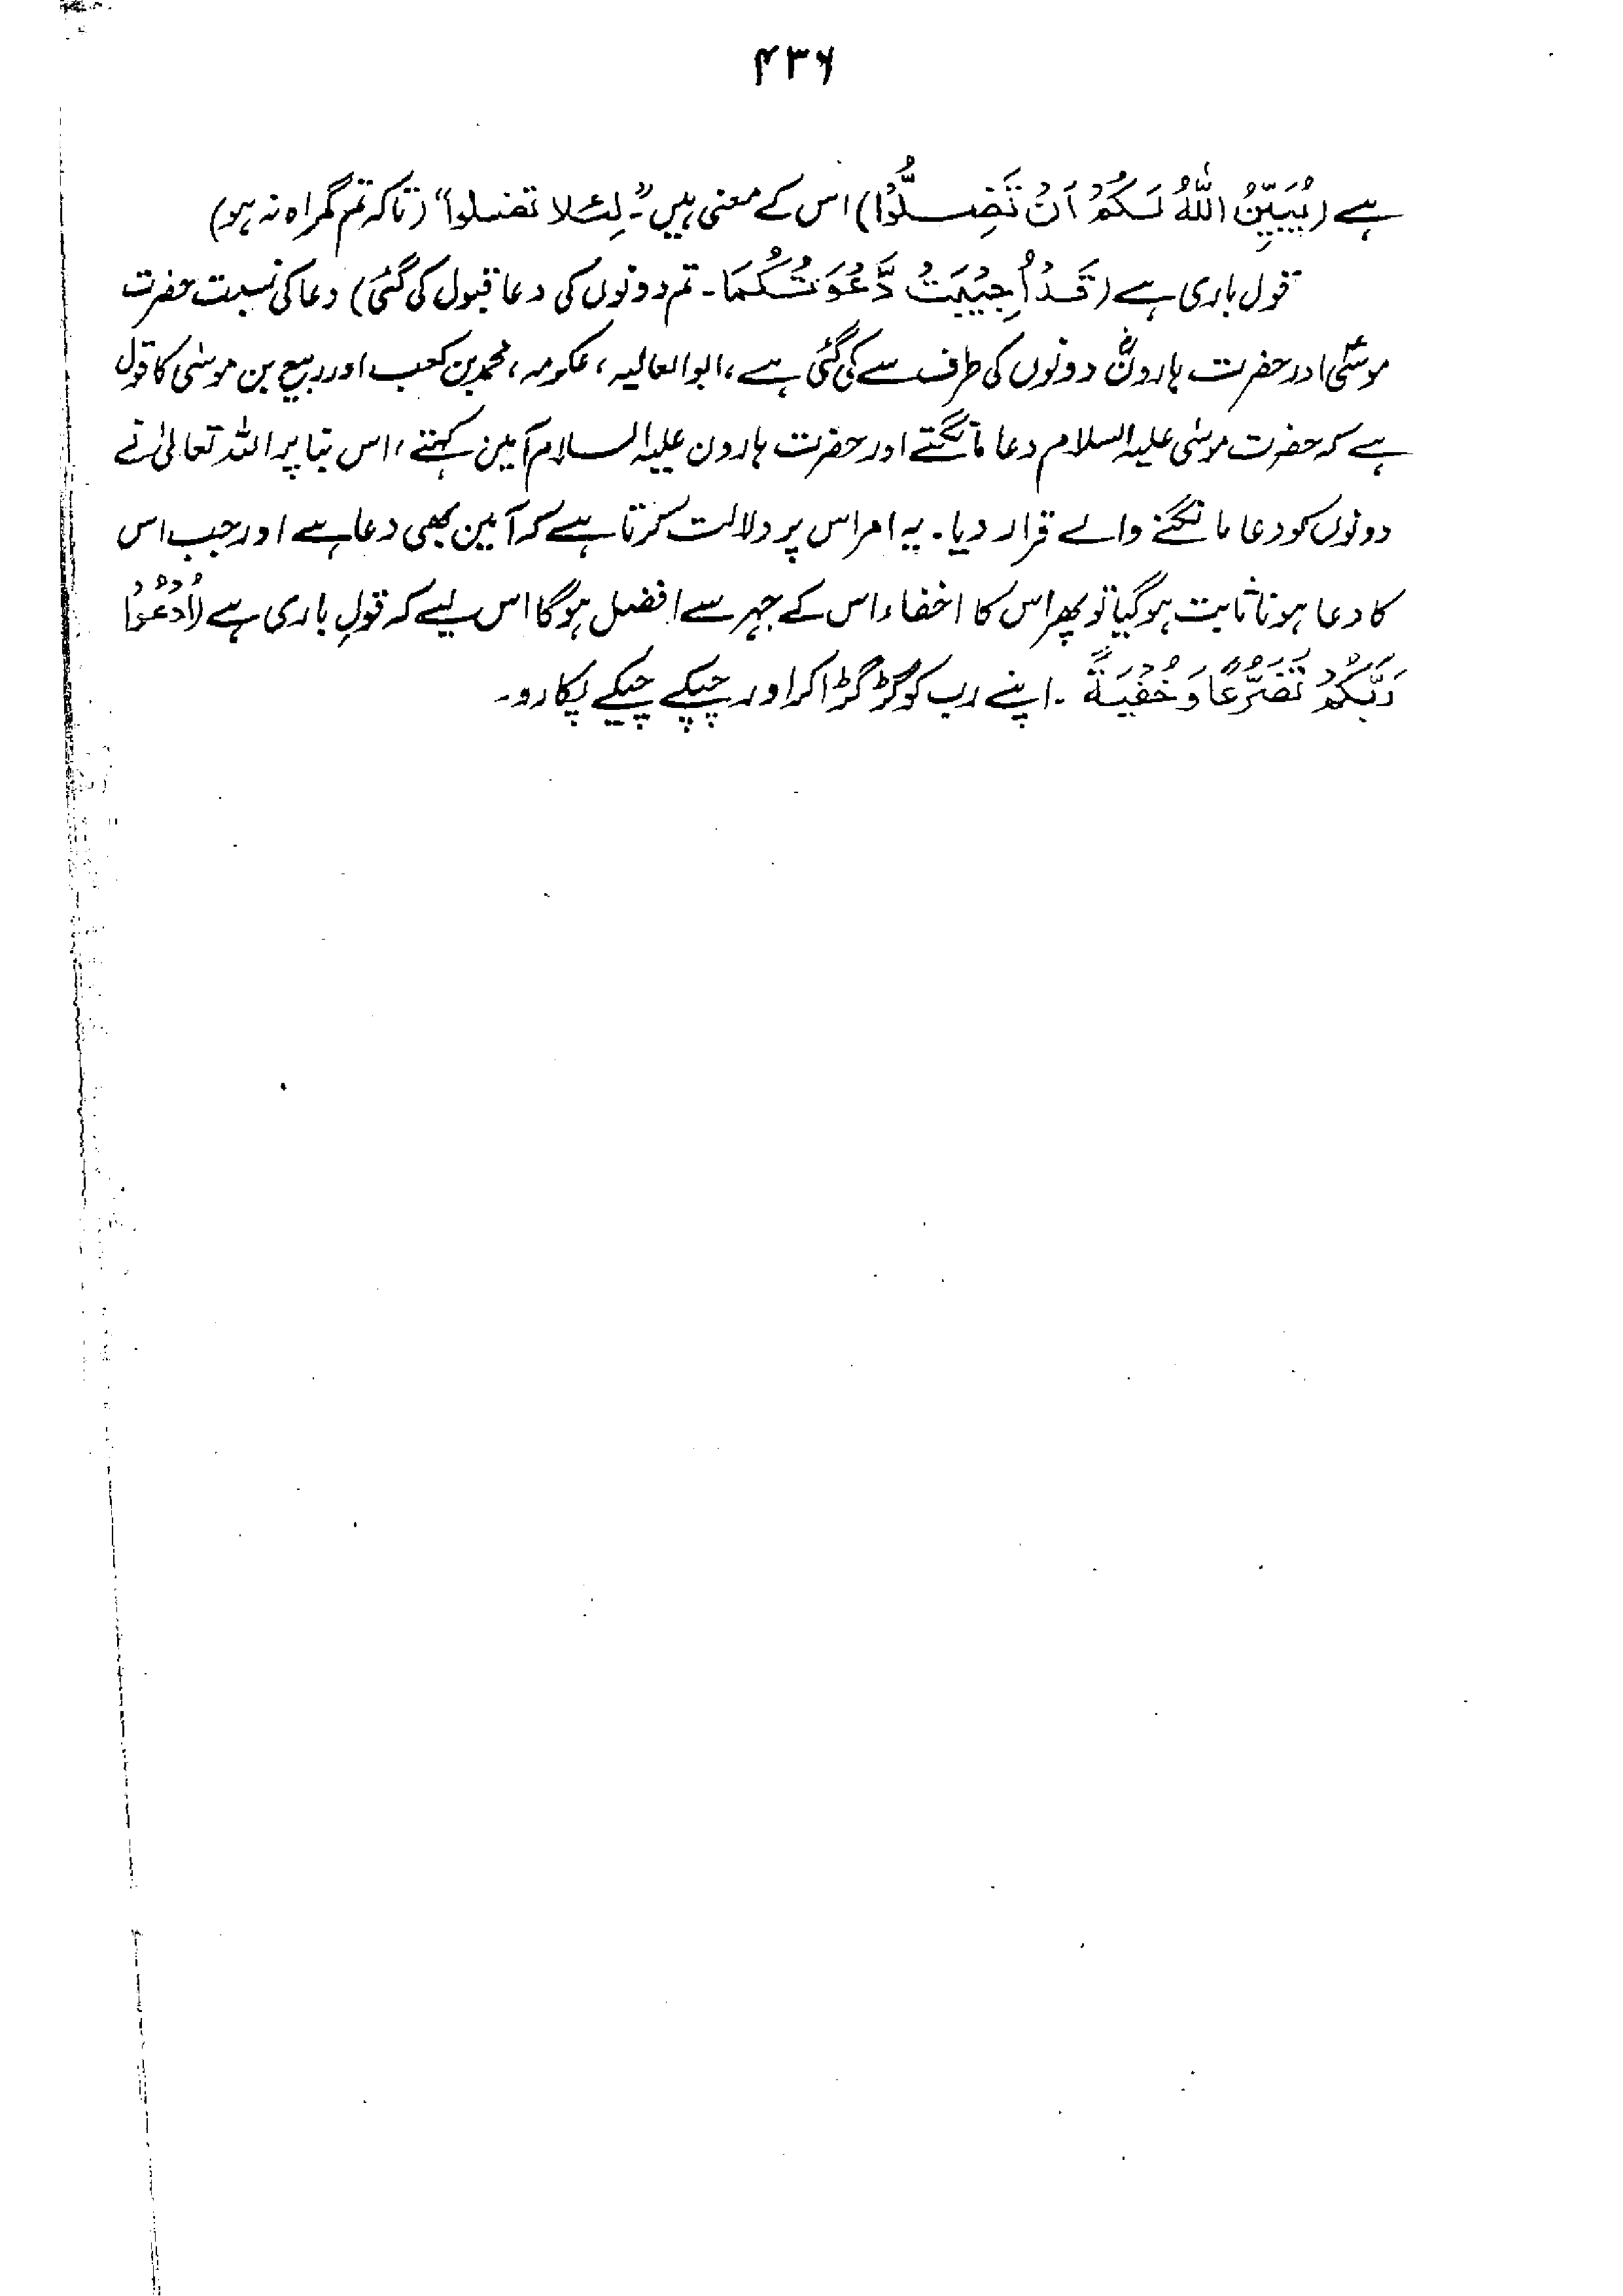 ۴۳۶
ہے (یُبَیِّنُ اللّٰہُ لَکُمْ اَنْ تَضِلُّوْا) اس کے معنی ہیں "۔ لِئلا تضلوا" (تاکہ تم گمراہ نہ ہو)
قول باری ہے (قَدْ اُجِیْبَتْ دَّعْوَتُکُمَا۔ تم دونوں کی دعا قبول کی گئی) دعا کی نسبت حضرت
موسیٰؑ اور حضرت ہارونؑ دونوں کی طرف سے کی گئی ہے، ابوالعالیہ، عکرمہ، محمد بن کعب اور ربیع بن موسیٰ کا قول
ہے کہ حضرت موسیٰ علیہ السلام دعا مانگتے اور حضرت ہارون علیہ السلام آمین کہتے، اس بنا پر اللہ تعالیٰ نے
دونوں کو دعا مانگنے والے قرار دیا۔ یہ امر اس پر دلالت کرتا ہے کہ آمین بھی دعا ہے اور جب اس
کا دعا ہونا ثابت ہو گیا تو پھر اس کا اخفاء اس کے جہر سے افضل ہو گا اس لیے کہ قولِ باری ہے (اُدْعُوْا
رَبَّکُمْ تَضَرُّعًا وَخُفْیَۃً ۔ اپنے رب کو گڑگڑا کر اور چپکے چپکے پکارو۔